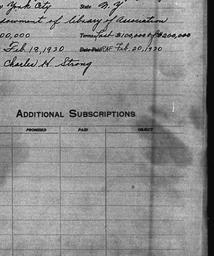 York City State N.Y.
Endowment of library of Association
00,000 Terms Last $100,000 of $200,000
Feb. 18, 1920 Date Paid Feb. 20, 1920
Charles H. Strong
ADDITIONAL SUBSCRIPTIONS
PROMISED PAID OBJECT